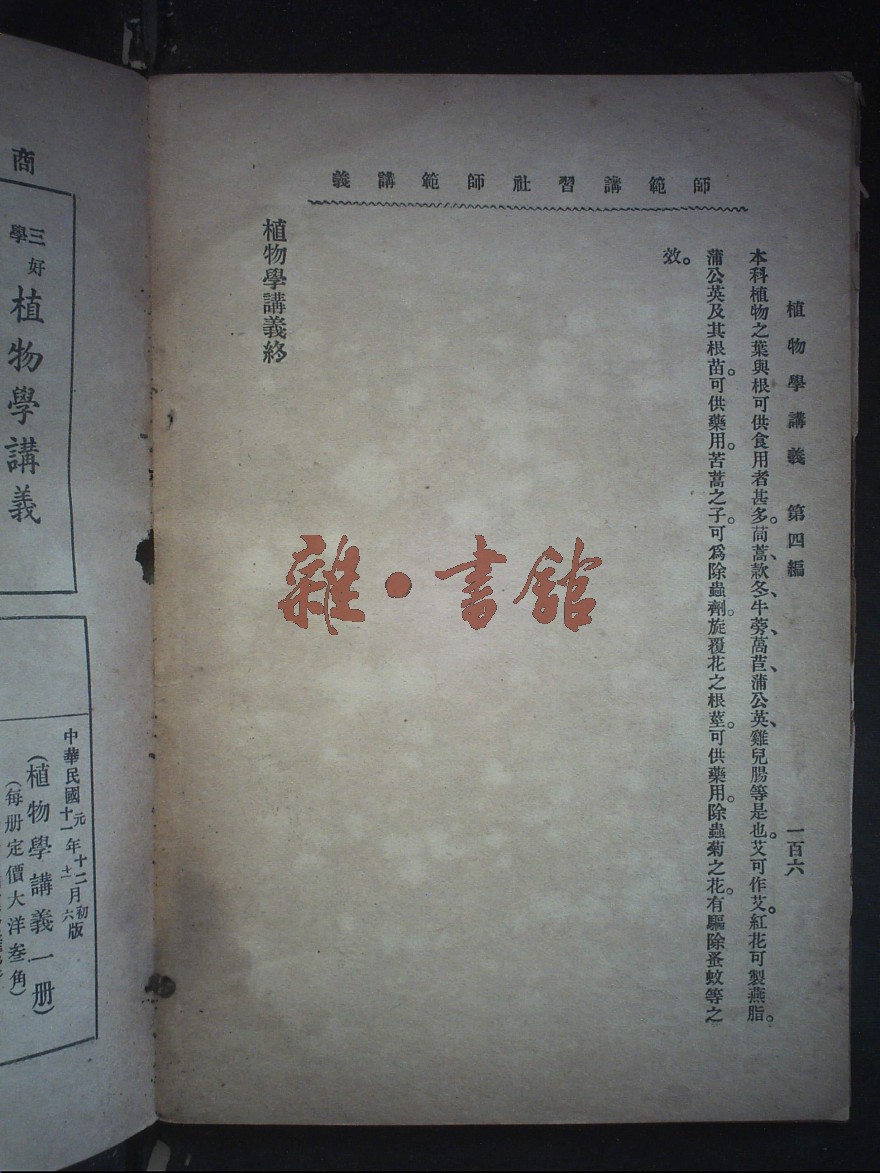 師範講習社師範講義
植物學講義　第四編　一百六
本科植物之葉與根可供食用者甚多。茼蒿、款冬、牛蒡、萵苣、蒲公英、雞兒腸等是也。艾可作艾。紅花可製燕脂。
蒲公英及其根苗。可供藥用。苦蒿之子。可爲除蟲劑。旋覆花之根莖。可供藥用。除蟲菊之花。有驅除蚤蚊等之
效。
植物學講義終
雜·書館
商
三好學
植物學講義
中華民國元年十二月初版
十一年十二月六版
(植物學講義一册)
(每册定價大洋叁角)